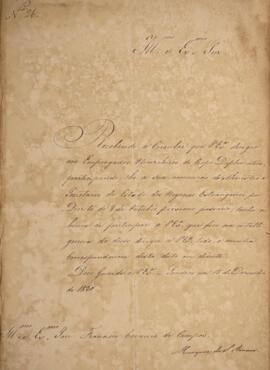 Nº 26.
Illmo e Exmo Snr
Recebendo a Circular que V Exa dirigio
aos Empregados do Corpo Diplomatico
participando a sua nomeação de Ministro e
Secretario de Estado dos Negocios Estrangeiros por
Decreto de 8 de Outubro proximo passado, tenho a
honra de participar a V Exa que fico na intelli-
gencia de dever dirigir a V Exa toda a minha
correspondencia desta data em diante.
Deos Guarde a V Exa Londres 16 de Dezembro
de 1830
Illmo e Exmo Snr Francisco Carneiro de Campos
Marquez de Sto Amaro